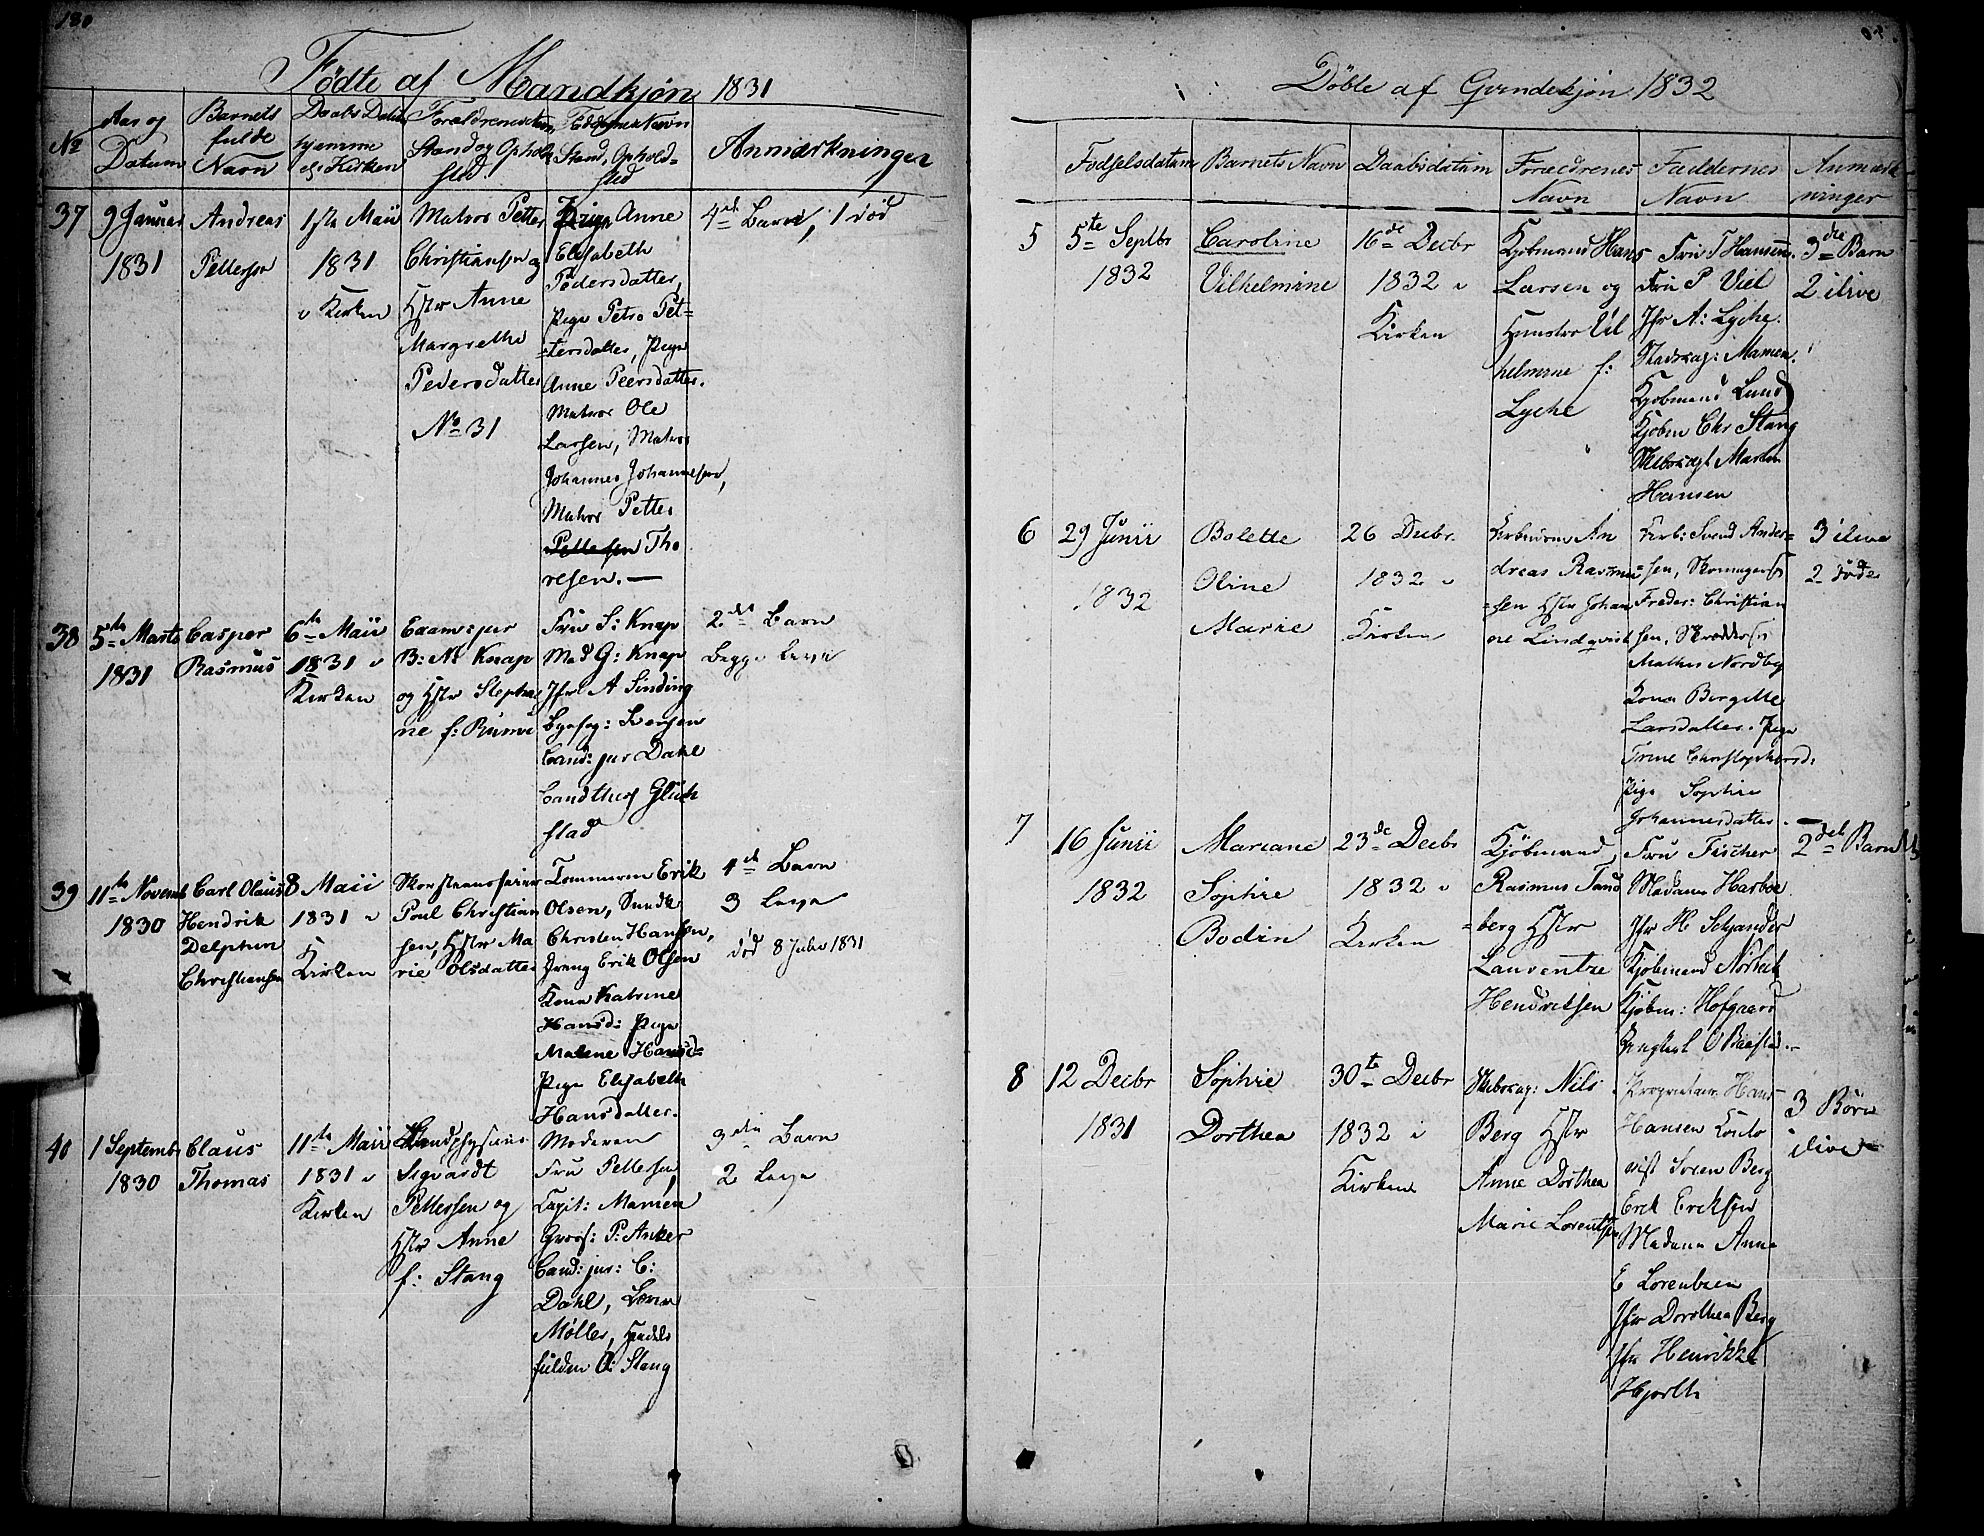 180
Fødte af Mandkjøn 1831
No
Aar og
Datum
Barnets
fulde
Navn
Daabs Datum
hjemme
el: Kirken
Forældrenes Navn
Stand og Ophold
sted
Faddernes Navn
Stand, Ophold-
sted
Anmærkninger
37
9 Januar
1831
Andreas
Pettersen
1ste Maii
1831
i Kirken
Matros Petter
Christiansen og
Hstr Anne
Margrethe
Pedersdatter
No 31
Pige Anne
Elisabeth
Pedersdatter,
Pige Petro Pet-
tersdatter, Pige
Anne Peersdatter.
Matros Ole
Larsen, Matros
Johannes Johannesen,
Matros Petter
Pettersen Tho
resen. —
4de Barn, 1 død
38
5te Marts
1831
Casper
Rasmus
6te Maii
1831 i
Kirken
Exam: jur
B: M: Knap
og Hstr Stepha
ne f:
Fru S: Knap
Mad G: Knap
Jfr A Sinding
Byefog: Iversen
Cand: jur Dahl
Cand theol Glück
stad
2det Barn
Begge leve
39
11te Novemb
1830
Carl Olaus
Hendrik
Delphin
Christiansen
8 Maii
1831 i
Kirken
Skorsteensfeier
Poul Christian
sen, Hstr Ma
rie Olsdatter
Tømmerm Erik
Olsen,
Christen Hansen,
Dreng Erik Olsen
Kone Katrine
Hansd: Pige
Malene Hansd=
Pige Elisabeth
Hansdatter.
4de Barn
3 leve
død 8 Julii 1831
40
1 Septemb
1830
Claus
Thomas
11te Maii
1831 i
Kirken
Landphysicus
Sigvardt
Pettersen og
Hstr Anne
f: Stang
Moderen
Fru Pettersen,
Capit: Mamen
Gross: P: Anker
Cand: jur: C:
Dahl,
Møller, Handels
fulden O: Stang
3die Barn
2 leve
Døbte af Qvindekjøn 1832
Fødselsdatum
Barnets Navn
Daabsdatum
Forældrenes
Navn
Faddernes
Navn
Anmærk
ninger
5
5te Septbr
1832
Caroline
Vilhelmine
16de Decbr
1832 i
Kirken
Kjøbmand Hans
Larsen og
Hunstro Vil
helmine f:
Lyche
Fru T Hansen
Fru P Viel
Jfr A: Lyche.
Stadscap: Mamen.
Kjøbmand Lund
Kjøbm Chr Stang
Skibscapt Martin
Hansen
3die Barn
2 ilive
6
29 Junii
1832
Bolette
Oline
Marie
26 Decbr.
1832 i
Kirken
Arbmnd An
dreas Rasmu
sen Hstr Johan
ne Lindqvist
Arb: Svend Ander=
sen, Skomagersv
Freder: Christian
sen, Skreddersv
Mathis Nordby
Kona Birgitte
Larsdatter. Pige
Trine Christophersd:
Pige Sophie
Johannesdatter. —
3 ilive
2 døde
7
16 Junii
1832
Mariane
Sophie
Bodin
23de Decbr
1832 i
Kirken
Kjøbmand
Rasmus Tand
=berg Hstr
Laurentze
Hendriksen
Fru Fischer
Madame Harboe
Jfr H Schjander
Kjøbmand Norbeck
Kjøbm: Hofgaard
2det Barn
8
12 Decbr
1831
Sophie
Dorthea
30te Decbr
1832 i
Kirken
Skibscap: Nils
Berg Hstr
Anne Dorthea
Marie Lorentsen
Proprietair Hans
Hansen Konto
rist Soren Berg
Erik Eriksen
Madame Anne
E Lorentzen
Jfr Dorothea Berg
Jfr Henrikke
Hjorth
3 Børn
ilive